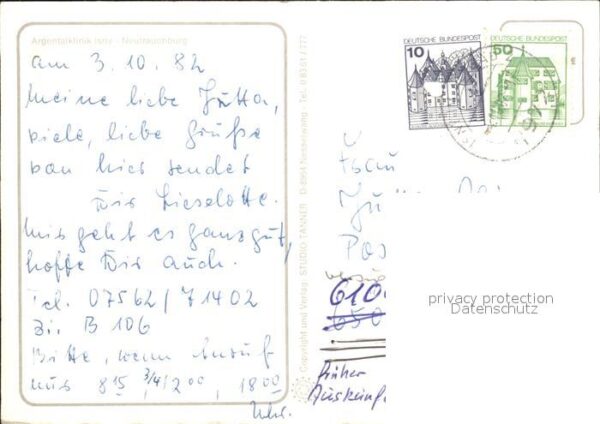 Argentalklinik Isny - Neutrauchburg
am 3. 10. 82
Meine liebe Jutta,
viele, liebe Grüße
von hier sendet
Dir Lieselotte.
Mir geht es ganz gut,
hoffe Dir auch.
Tel. 07562/71402
Zi. B 106
Bitte, wenn Anruf
nur 8 15, 3/4/2 00, 18 00
Uhr.
Copyright und Verlag: STUDIO TANNER · D-8964 Nesselwang · Tel. 0 83 61 / 777
DEUTSCHE BUNDESPOST
10
DEUTSCHE BUNDESPOST
50
Frau
Pos
610
650
früher
privacy protection
Datenschutz